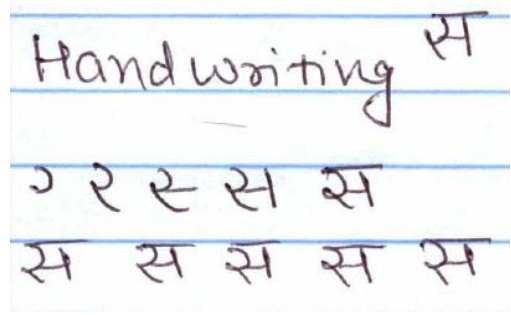 Handwriting स
२ स स
स स स स स